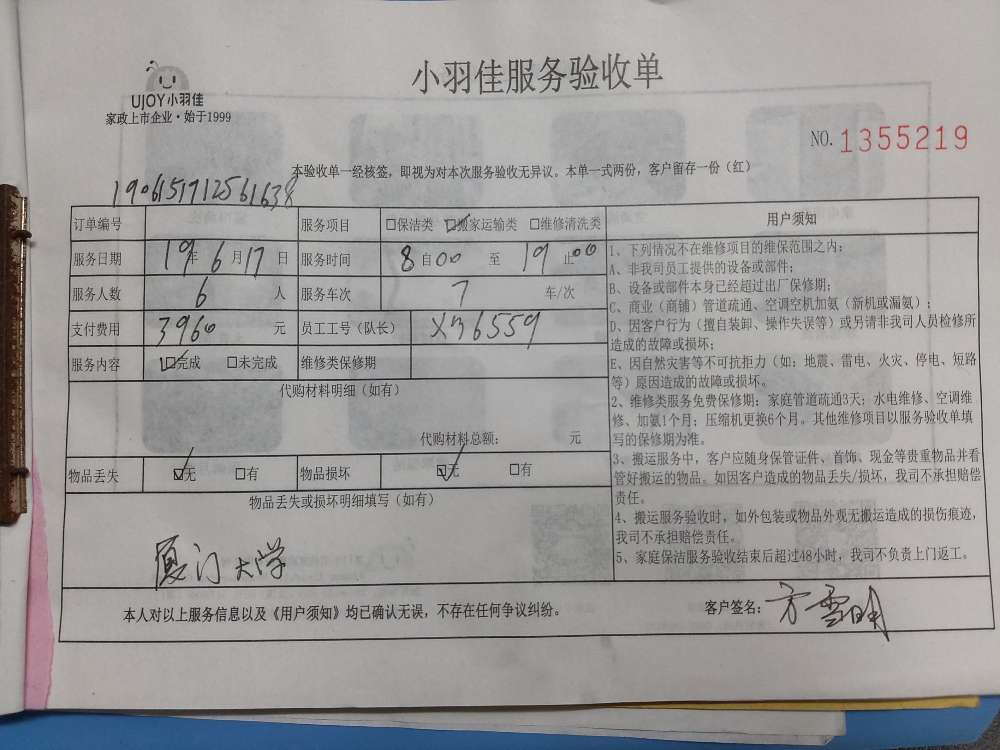 小羽佳服务验收单
UJOY小羽佳
家政上市企业·始于1999
NO. 1355219
本验收单一经核签，即视为对本次服务验收无异议。本单一式两份，客户留存一份（红）
订单编号 服务项目 □保洁类 ☑搬家运输类 □维修清洗类
服务日期 19年6月17日 服务时间 8自00至19止00
服务人数 6 人 服务车次 7 车/次
支付费用 3960 元 员工工号（队长） X36559
服务内容 ☑完成 □未完成 维修类保修期
代购材料明细（如有）
代购材料总额： 元
物品丢失 ☑无 □有 物品损坏 ☑无 □有
物品丢失或损坏明细填写（如有）
厦门大学
用户须知
1、下列情况不在维修项目的维保范围之内：
A、非我司员工提供的设备或部件；
B、设备或部件本身已经超过出厂保修期；
C、商业（商铺）管道疏通、空调空机加氨（新机或漏氨）；
D、因客户行为（擅自装卸、操作失误等）或另请非我司人员检修所
造成的故障或损坏；
E、因自然灾害等不可抗拒力（如：地震、雷电、火灾、停电、短路
等）原因造成的故障或损坏。
2、维修类服务免费保修期：家庭管道疏通3天；水电维修、空调维
修、加氨1个月；压缩机更换6个月。其他维修项目以服务验收单填
写的保修期为准。
3、搬运服务中，客户应随身保管证件、首饰、现金等贵重物品并看
管好搬运的物品。如因客户造成的物品丢失/损坏，我司不承担赔偿
责任。
4、搬运服务验收时，如外包装或物品外观无搬运造成的损伤痕迹，
我司不承担赔偿责任。
5、家庭保洁服务验收结束后超过48小时，我司不负责上门返工。
本人对以上服务信息以及《用户须知》均已确认无误，不存在任何争议纠纷。
客户签名： 方雪明